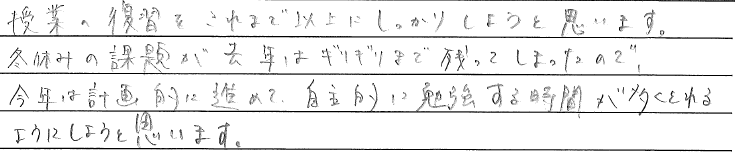 授業の復習をこれまで以上にしっかりしようと思います。
冬休みの課題が去年はギリギリまで残ってしまったので、
今年は計画的に進めて、自主的に勉強する時間が多くとれる
ようにしようと思います。